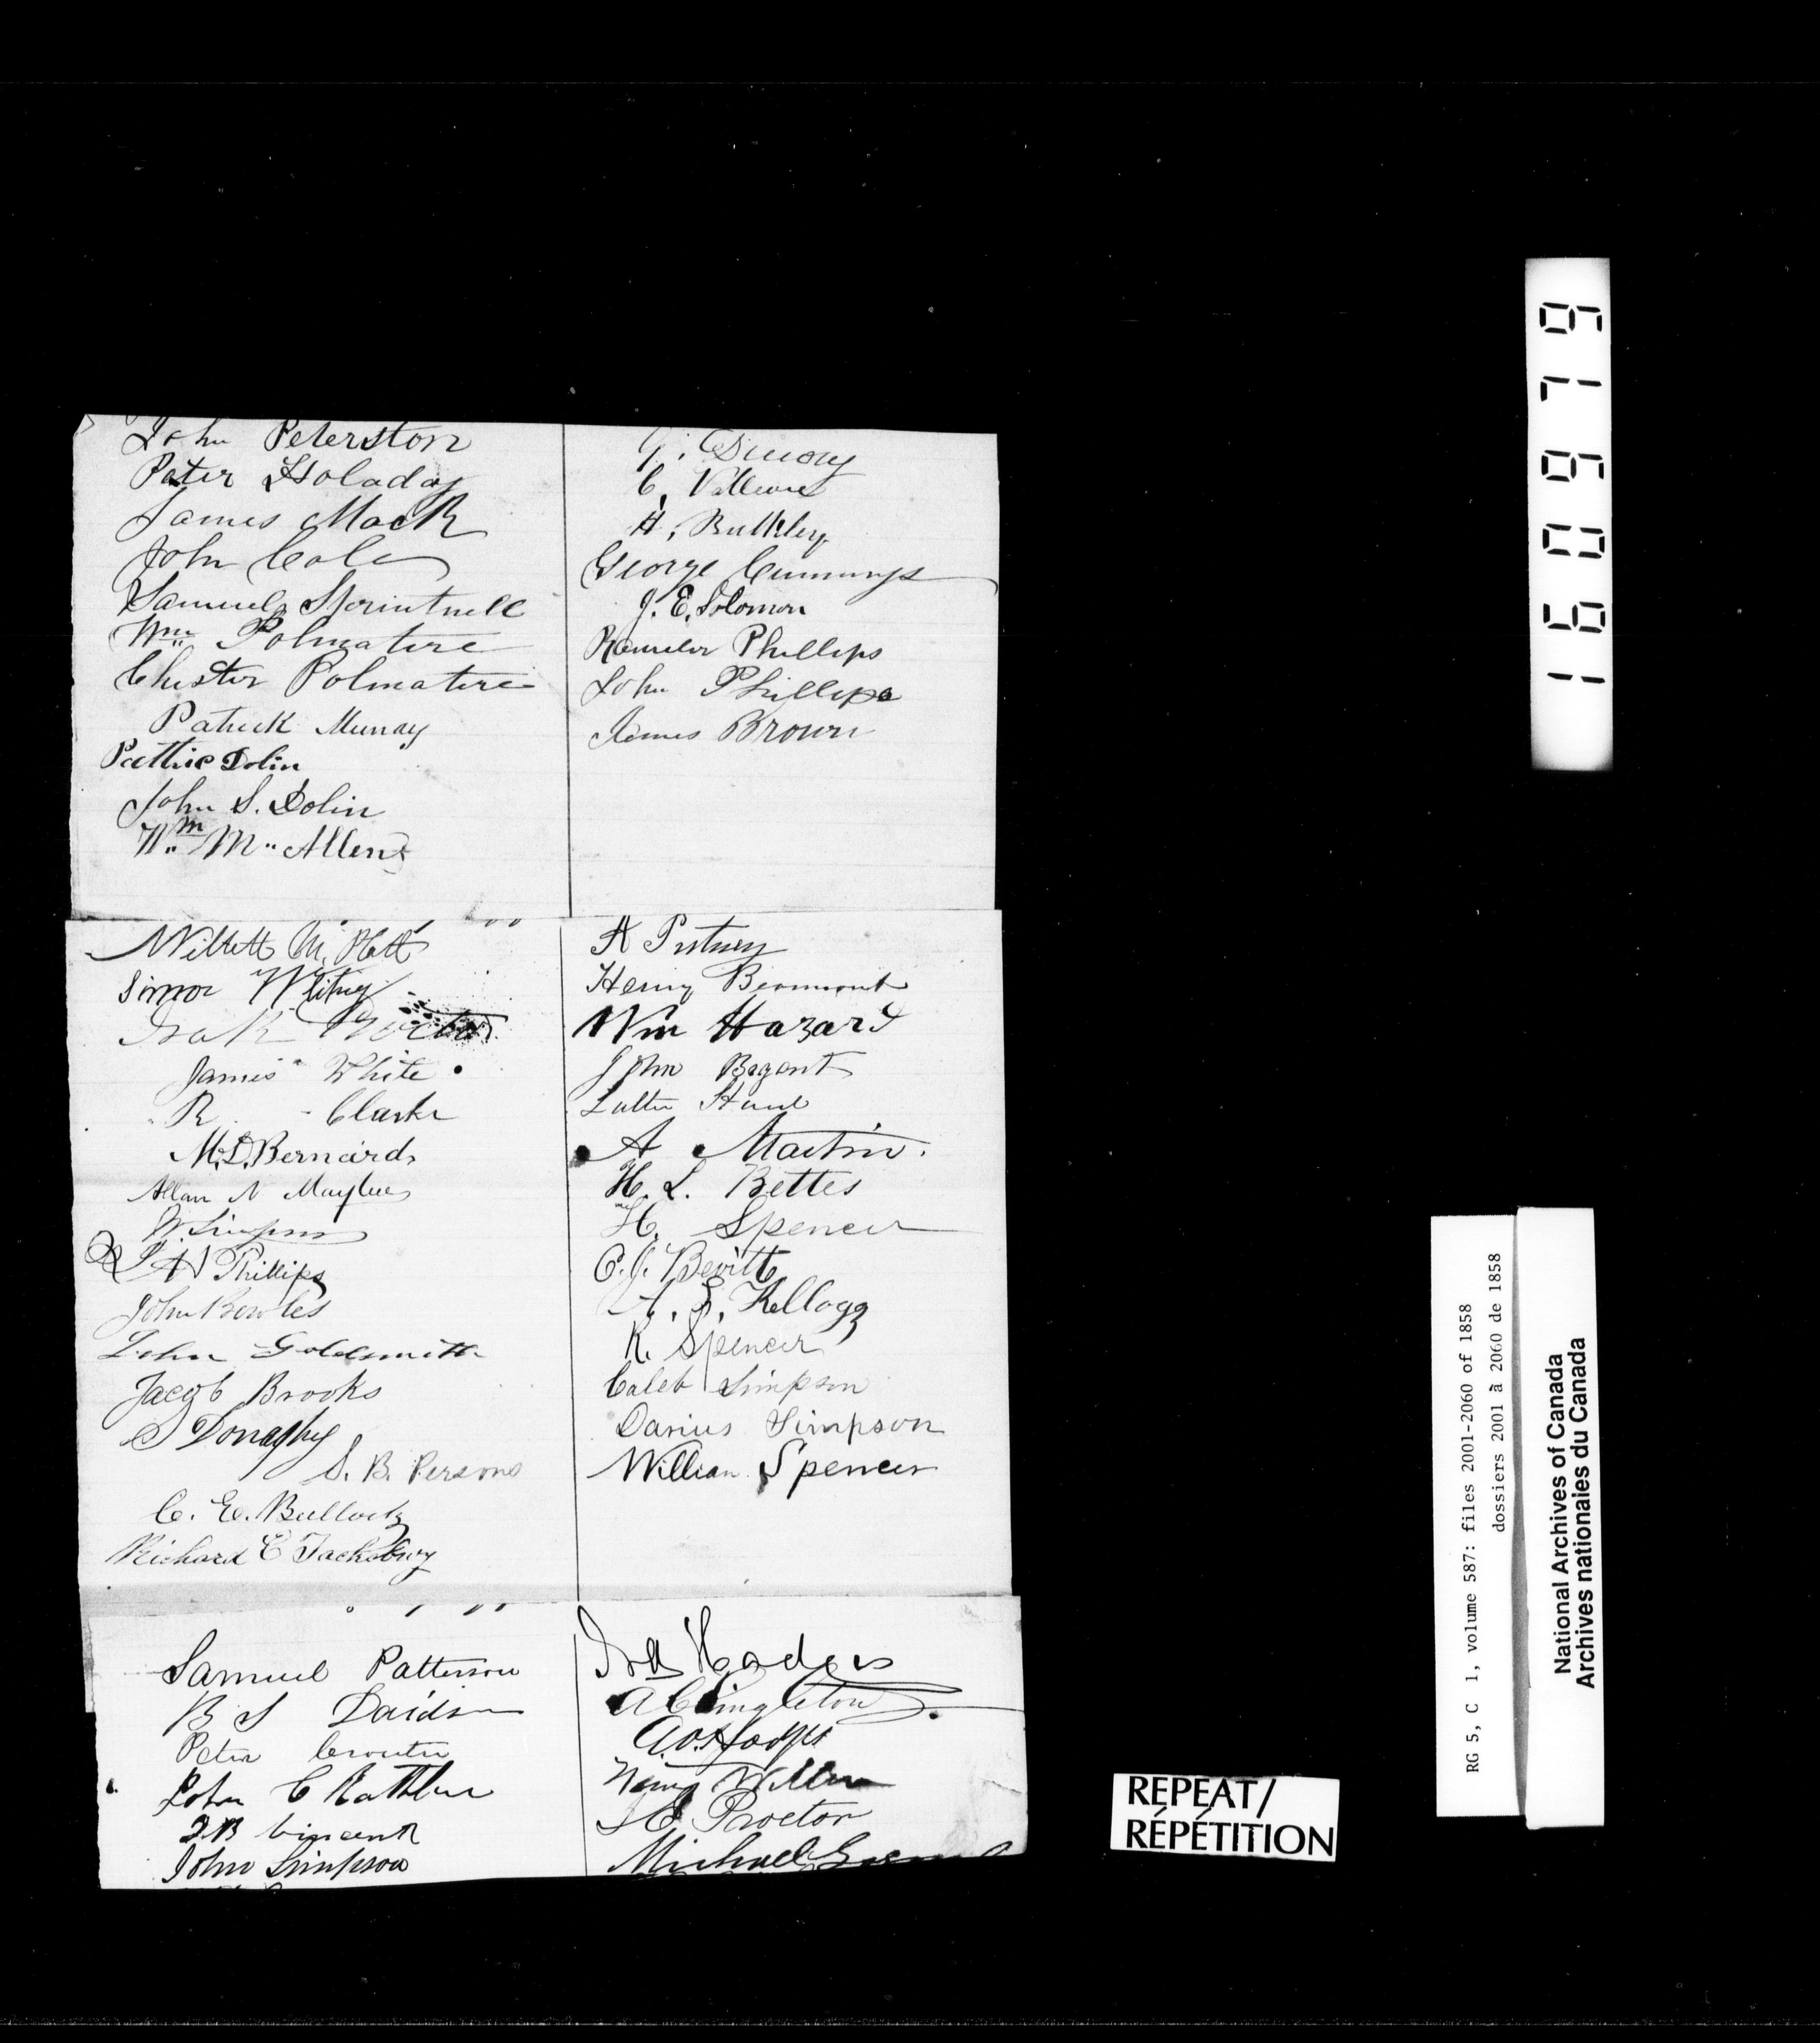 John Peterston
Peter Holaday
James Mack
John Cole
Samuel Sprintnell
Wm. Polmatire
Chester Polmatire
Patrick Murray
Pattric Dolin
John S. Dolin
Wm. Mc. Allen
G.
C.
H. Bulkley
George Cummings
J. E. Solomon
Phillips
John Phillips
James Brown
Willett
Simon
James White
R Clarke
M. D. Bernard
Allan N Maybee
W. Simpson
Phillips
John Bowles
John Goldsmith
Jacob Brooks
S Donaghy
S. B. Persons
C. E. Bullock
Richard C Tacksbury
A Putney
Henry Beaumont
Wm Hazard
John Bagant
A Martin.
H. L. Bettes
H. Spencer
C. J. Bevitt
A. S. Kellogg
R. Spencer
Caleb Simpson
Darius Simpson
William Spencer
Samuel Patterson
B S Davidson
Peter Crouter
John C Rathbun
J B Vincent
John Simpson
A C Singleton
Proctor
Michael
160979
RG 5, C 1, volume 587: files 2001-2060 of 1858
dossiers 2001 à 2060 de 1858
National Archives of Canada
Archives nationales du Canada
REPEAT/
RÉPÉTITION